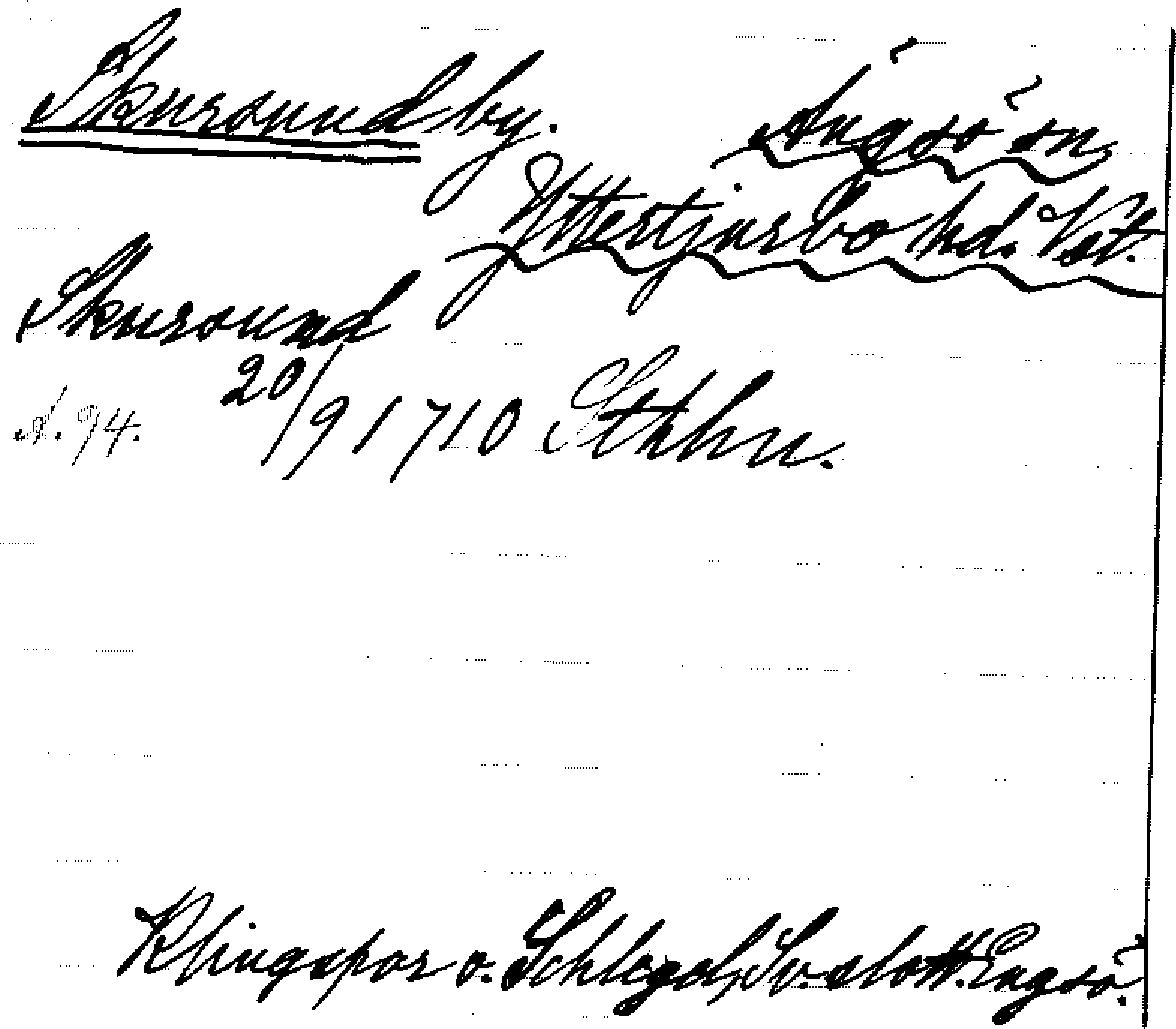 Skursund by. Ängsö sn,
Yttertjurbo hd. Vst.
Skursund
20/9 1710 Sthhn.
s. 94.
Klingspor o. Schlegel, Sv. slott. Engsö.